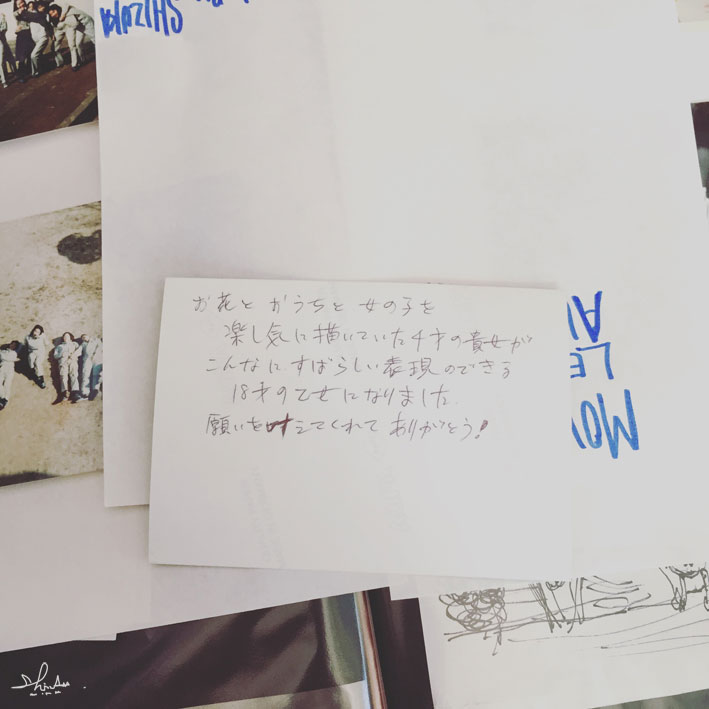 お花と おうちと 女の子を
楽し気に描いていた4才の貴女が
こんなに すばらしい表現のできる
18才の乙女になりました.
願いを叶えてくれて ありがとう!
MOV
LE